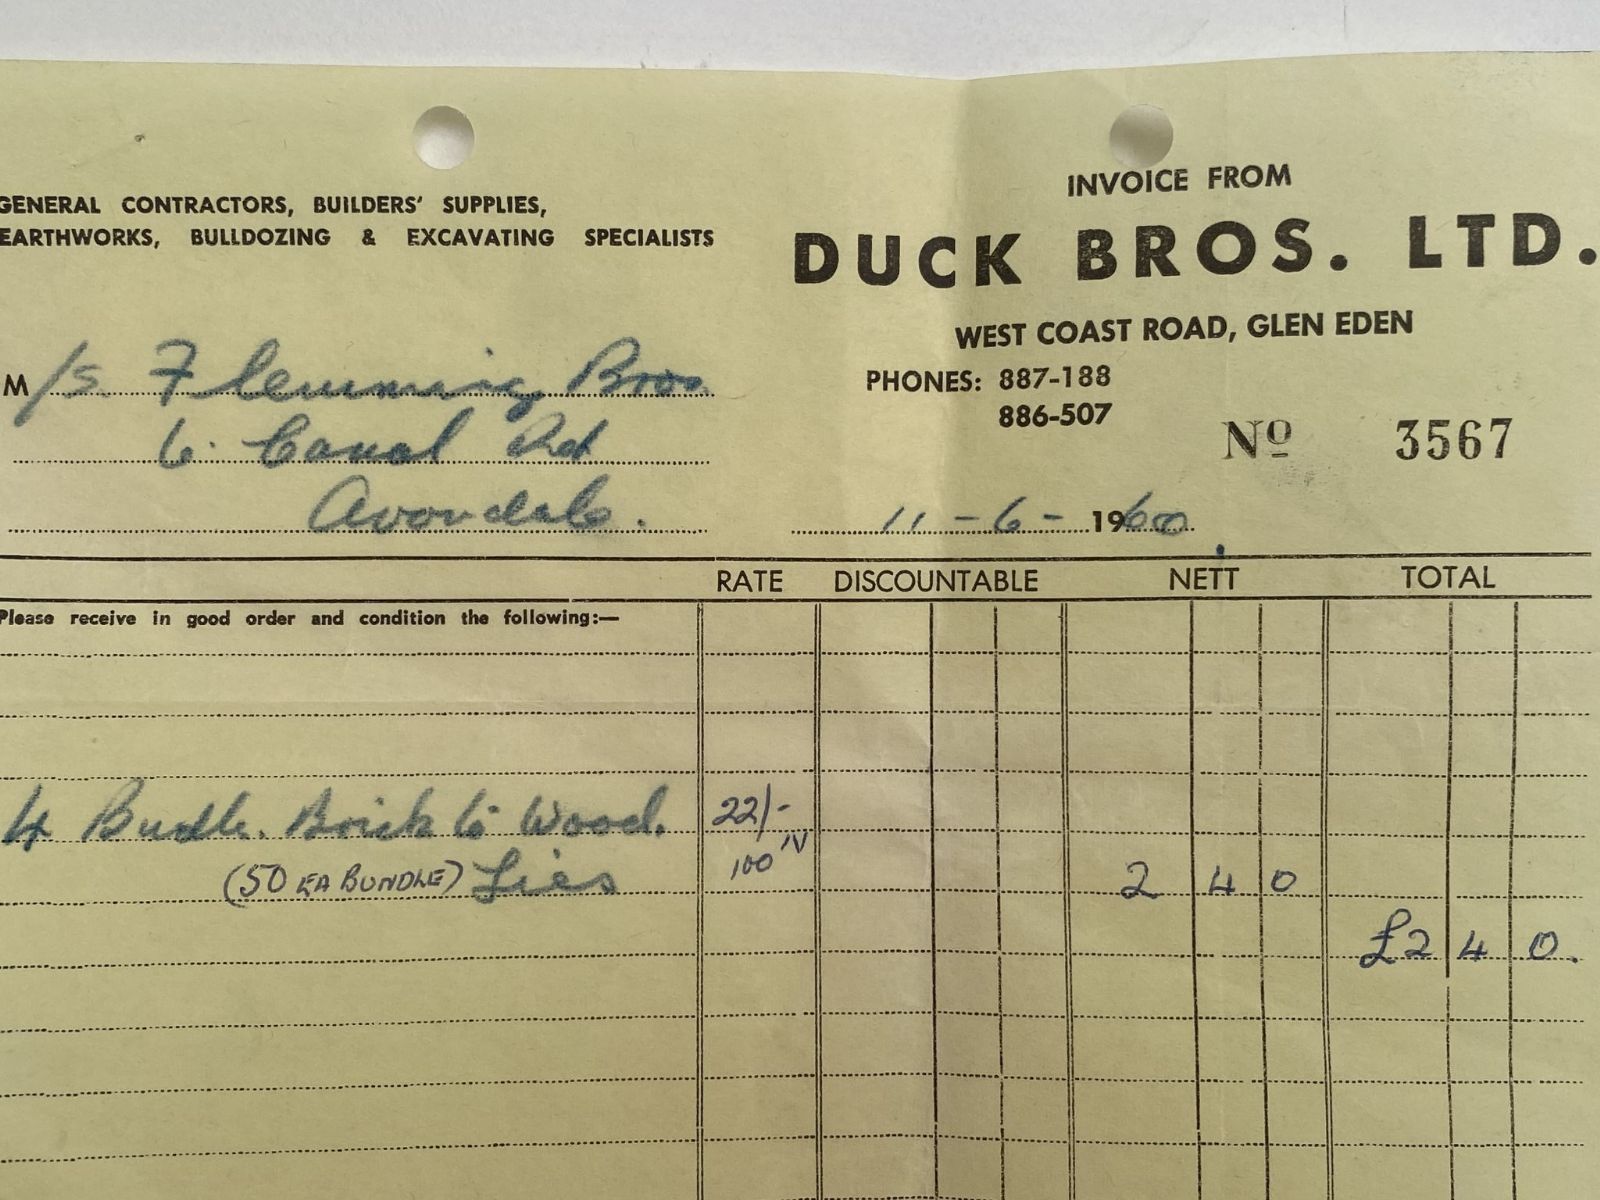 GENERAL CONTRACTORS, BUILDERS' SUPPLIES,
EARTHWORKS, BULLDOZING & EXCAVATING SPECIALISTS
INVOICE FROM
DUCK BROS. LTD.
WEST COAST ROAD, GLEN EDEN
PHONES: 887-188
886-507
No 3567
M/s. Flemming Bros.
6. Canal Rd
Avondale.
11-6-1960.
RATE DISCOUNTABLE NETT TOTAL
Please receive in good order and condition the following:—
4 Bundle. Brick to Wood. 22/-
(50 EA BUNDLE) Ties 100 2 4 0
£2 4 0.